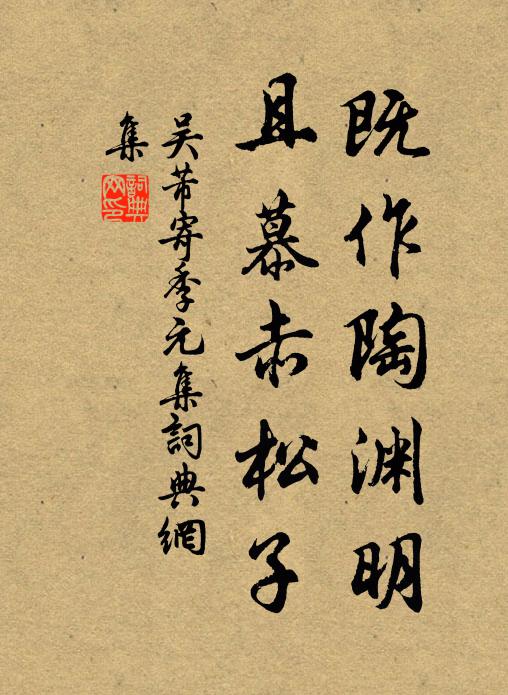 既作陶渊明
且慕赤松子
吴芾寄季元集詞典網
集
詞典
网印